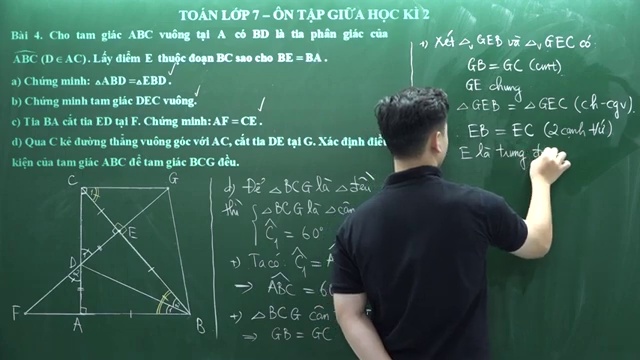 TOÁN LỚP 7 – ÔN TẬP GIỮA HỌC KÌ 2
Bài 4. Cho tam giác ABC vuông tại A có BD là tia phân giác của
ABC (D ∈ AC). Lấy điểm E thuộc đoạn BC sao cho BE = BA.
a) Chứng minh: △ABD = △EBD.
b) Chứng minh tam giác DEC vuông.
c) Tia BA cắt tia ED tại F. Chứng minh: AF = CE.
d) Qua C kẻ đường thẳng vuông góc với AC, cắt tia DE tại G. Xác định điều
kiện của tam giác ABC để tam giác BCG đều.
C
G
E
D
F
A
B
d) Để △BCG là △đều
thì △BCG là △cân
Ĉ₁ = 60°
+) Ta có: Ĉ₁ =
⇒ ABC = 6
+) △BCG cân
⇒ GB = GC
+) Xét △vGEB và △vGEC có
GB = GC (cmt)
GE chung
△GEB = △GEC (ch-cgv)
EB = EC (2 cạnh t/ứ)
E là trung